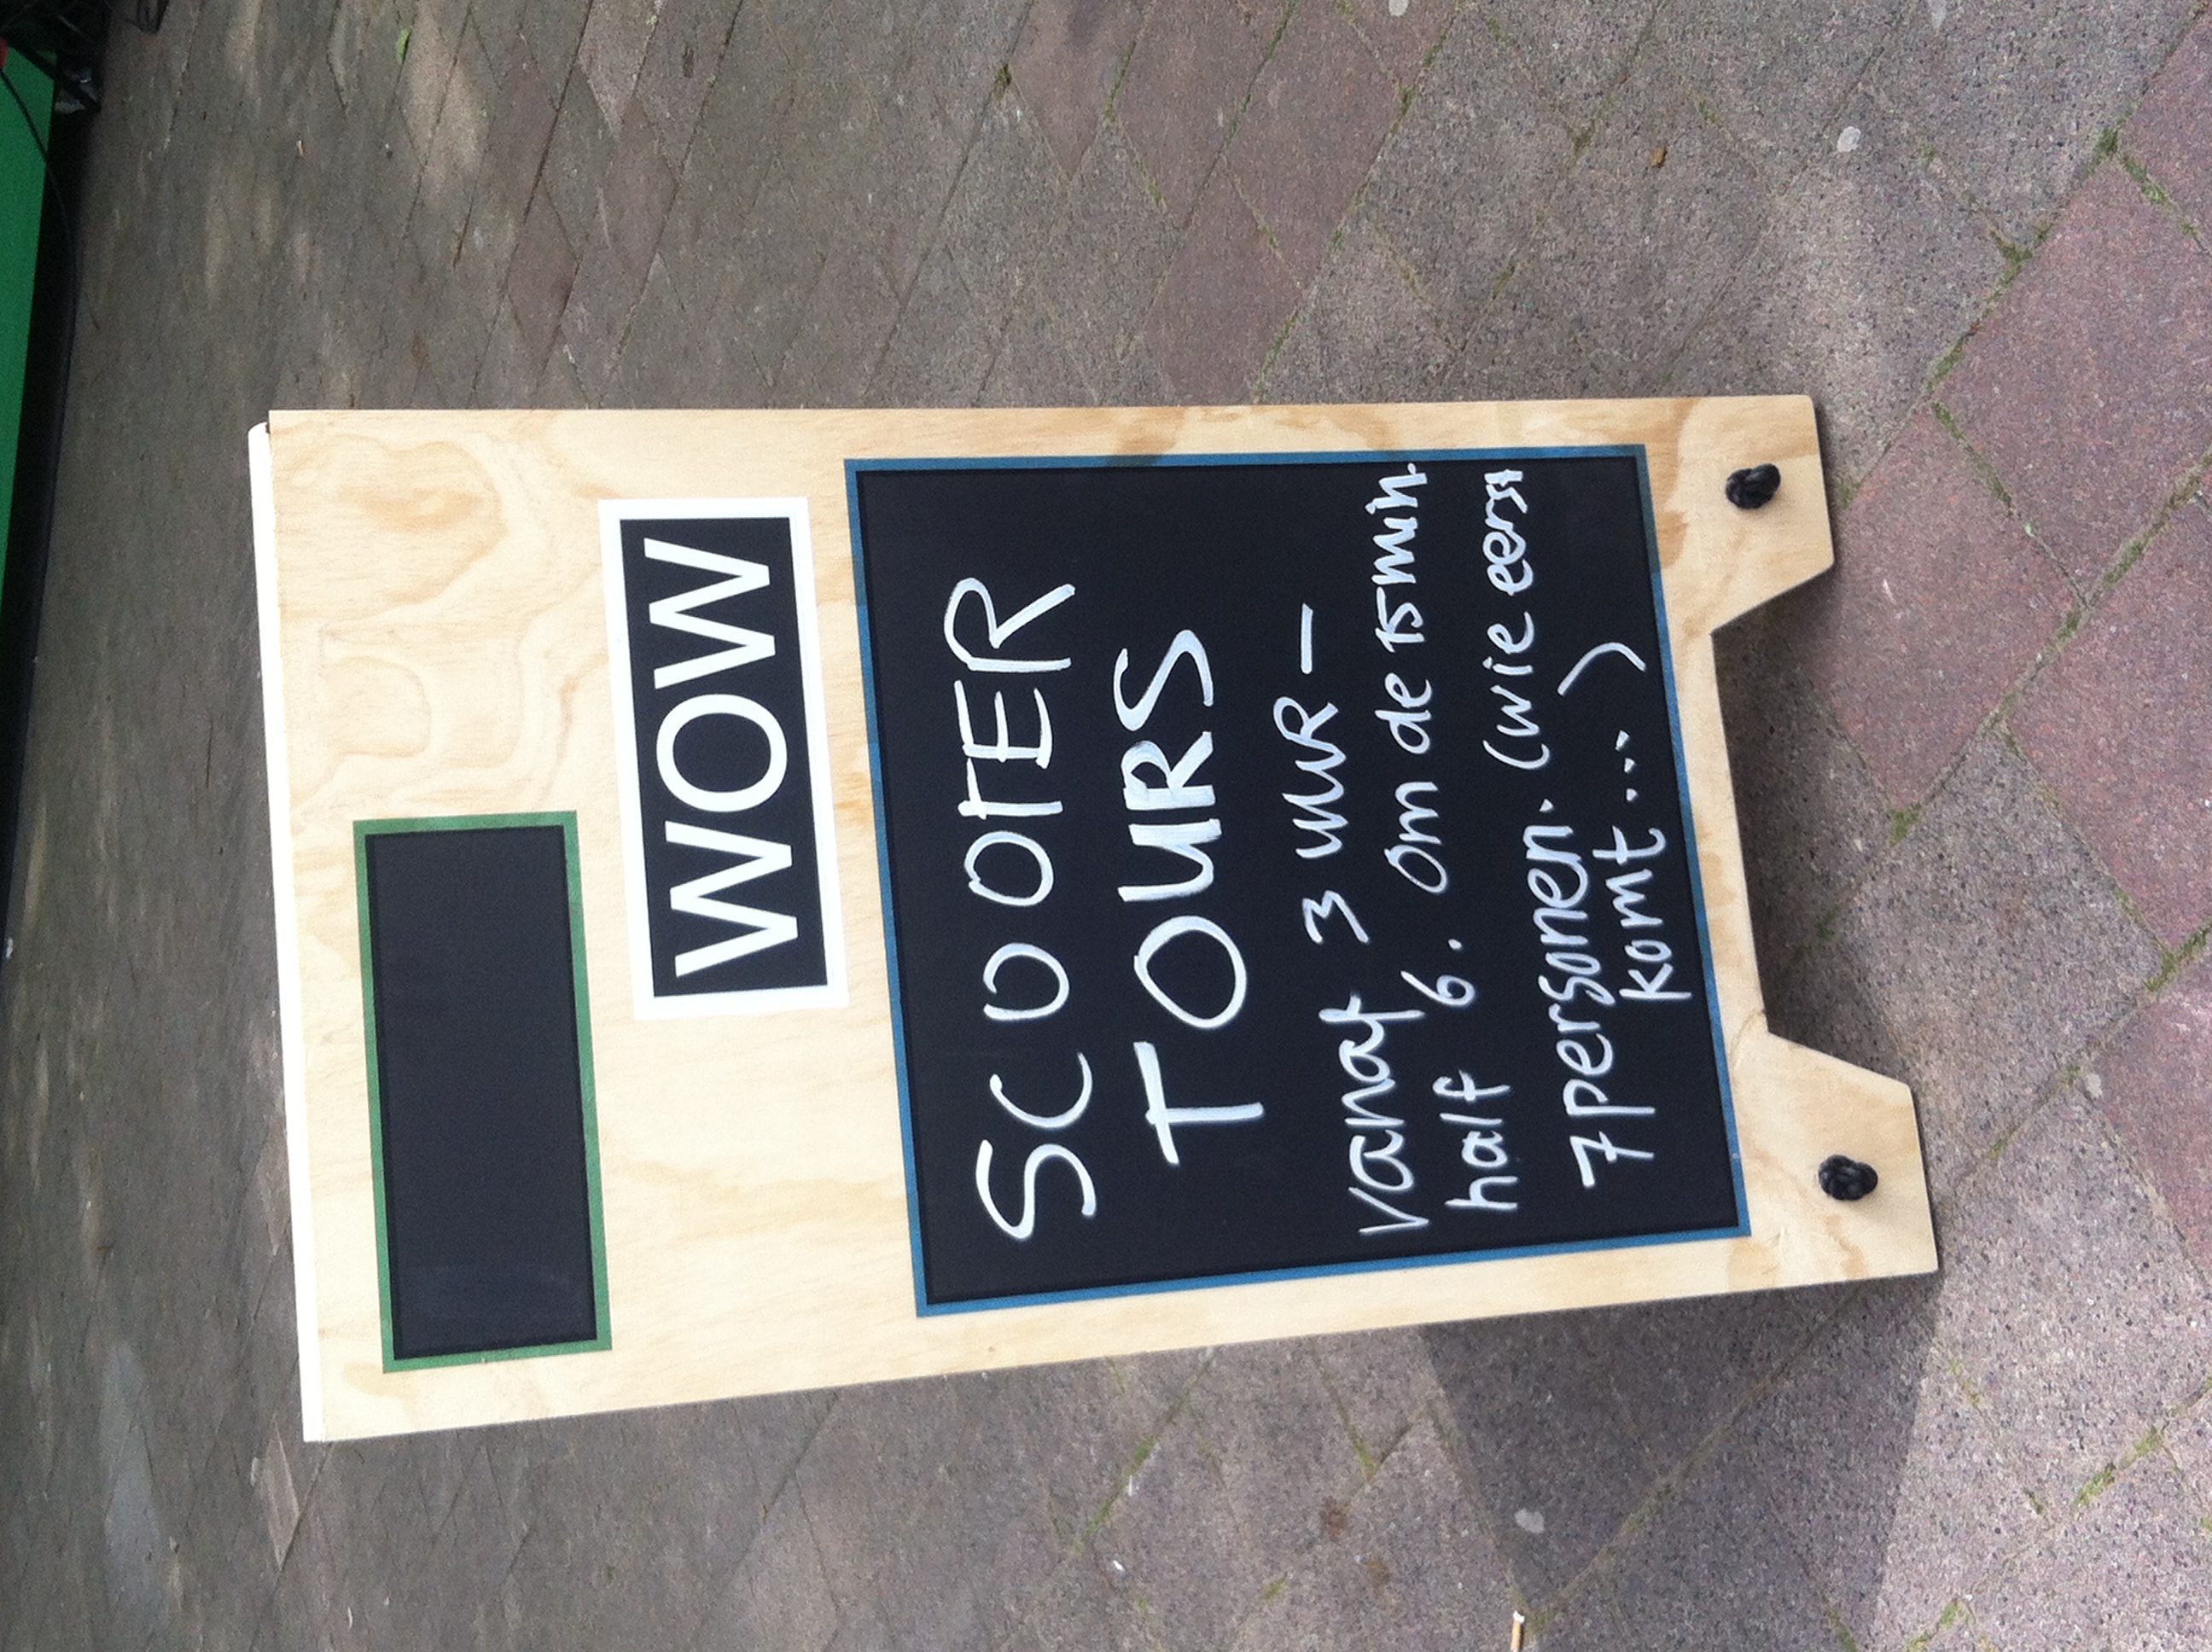 WOW
SCUOTER
TOURS
vanaf 3 uur -
half 6. om de 15 min
7 personen. (wie eerst
komt...)